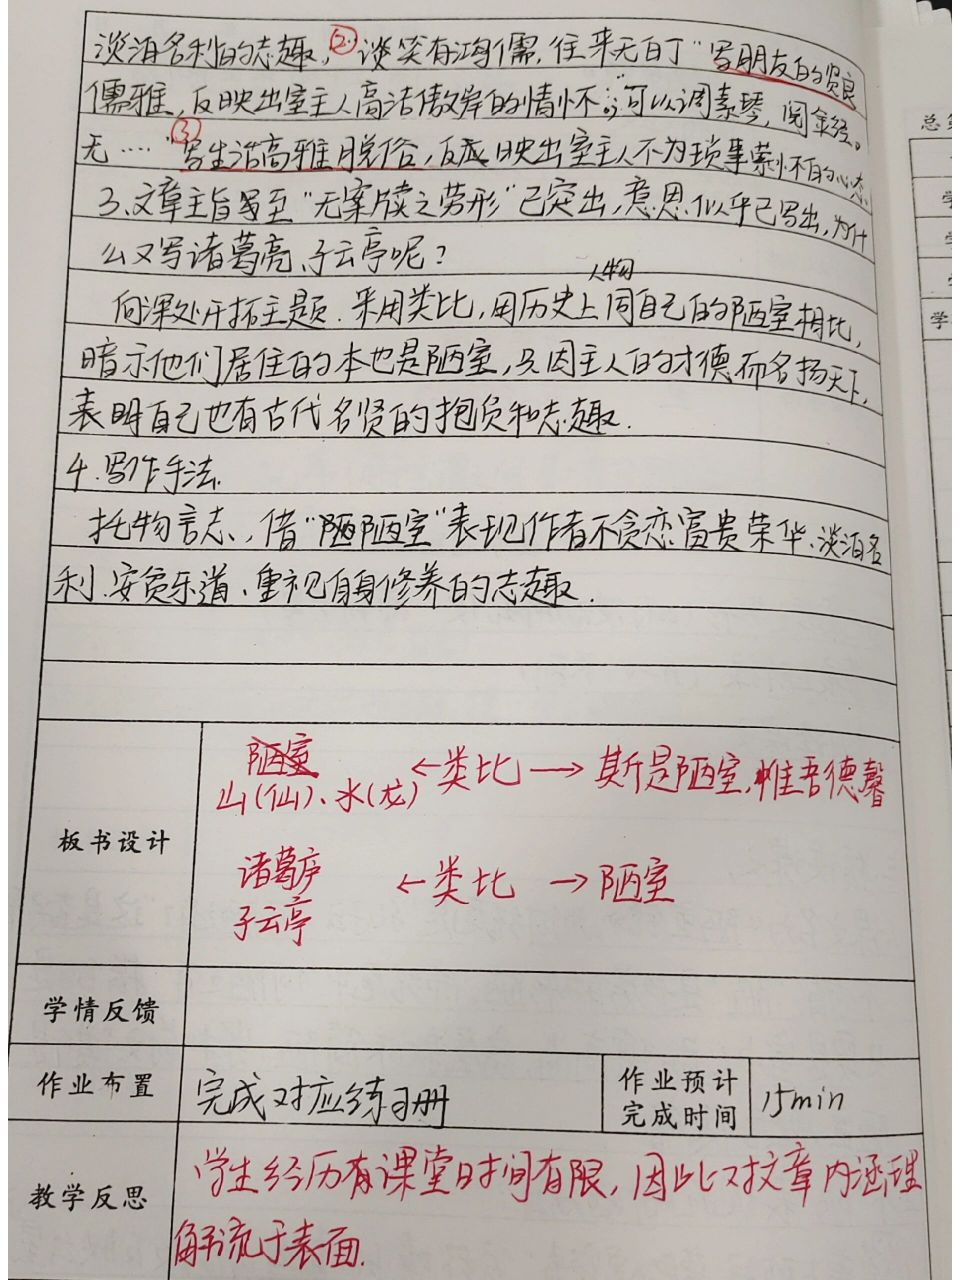 淡泊名利的志趣,②"谈笑有鸿儒,往来无白丁"写朋友的贤良
儒雅,反映出室主人高洁傲岸的情怀;"可以调素琴,阅金经。
无……"③写生活高雅脱俗,反映出室主人不为琐事萦怀的心态
3、文章主旨写至"无案牍之劳形"已突出,意思似乎已写出,为什
么又写诸葛亮、子云亭呢?
向深处开拓主题.采用类比,用历史上人物同自己的陋室相比,
暗示他们居住的本也是陋室,只因主人的才德而名扬天下,
表明自己也有古代名贤的抱负和志趣.
4.写作手法.
托物言志、借"陋室"表现作者不贪恋富贵荣华、淡泊名
利、安贫乐道、重视自身修养的志趣.
板书设计
陋室
山(仙)、水(龙)←类比→斯是陋室,惟吾德馨
诸葛庐
子云亭
←类比→陋室
学情反馈
作业布置
完成对应练习册
作业预计
完成时间
15min
教学反思
学生经历有课堂时间有限,因此对文章内涵理
解流于表面.
总
学
学